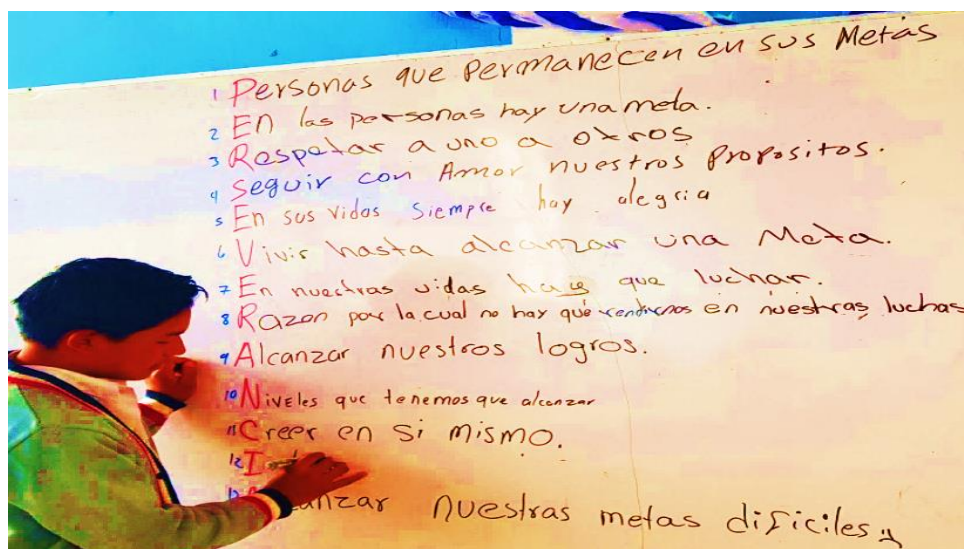 1 Personas que permanecen en sus Metas
2 EN las personas hay una meta.
3 Respetar a uno a otros
4 Seguir con Amor nuestros Propositos.
5 En sus vidas siempre hay alegria
6 Vivir hasta alcanzar una Meta.
7 En nuestras vidas hay que luchar.
8 Razon por la cual no hay que rendirnos en nuestras luchas
9 Alcanzar nuestros logros.
10 Niveles que tenemos que alcanzar
11 Creer en Si mismo.
12 I
nuestras metas dificiles